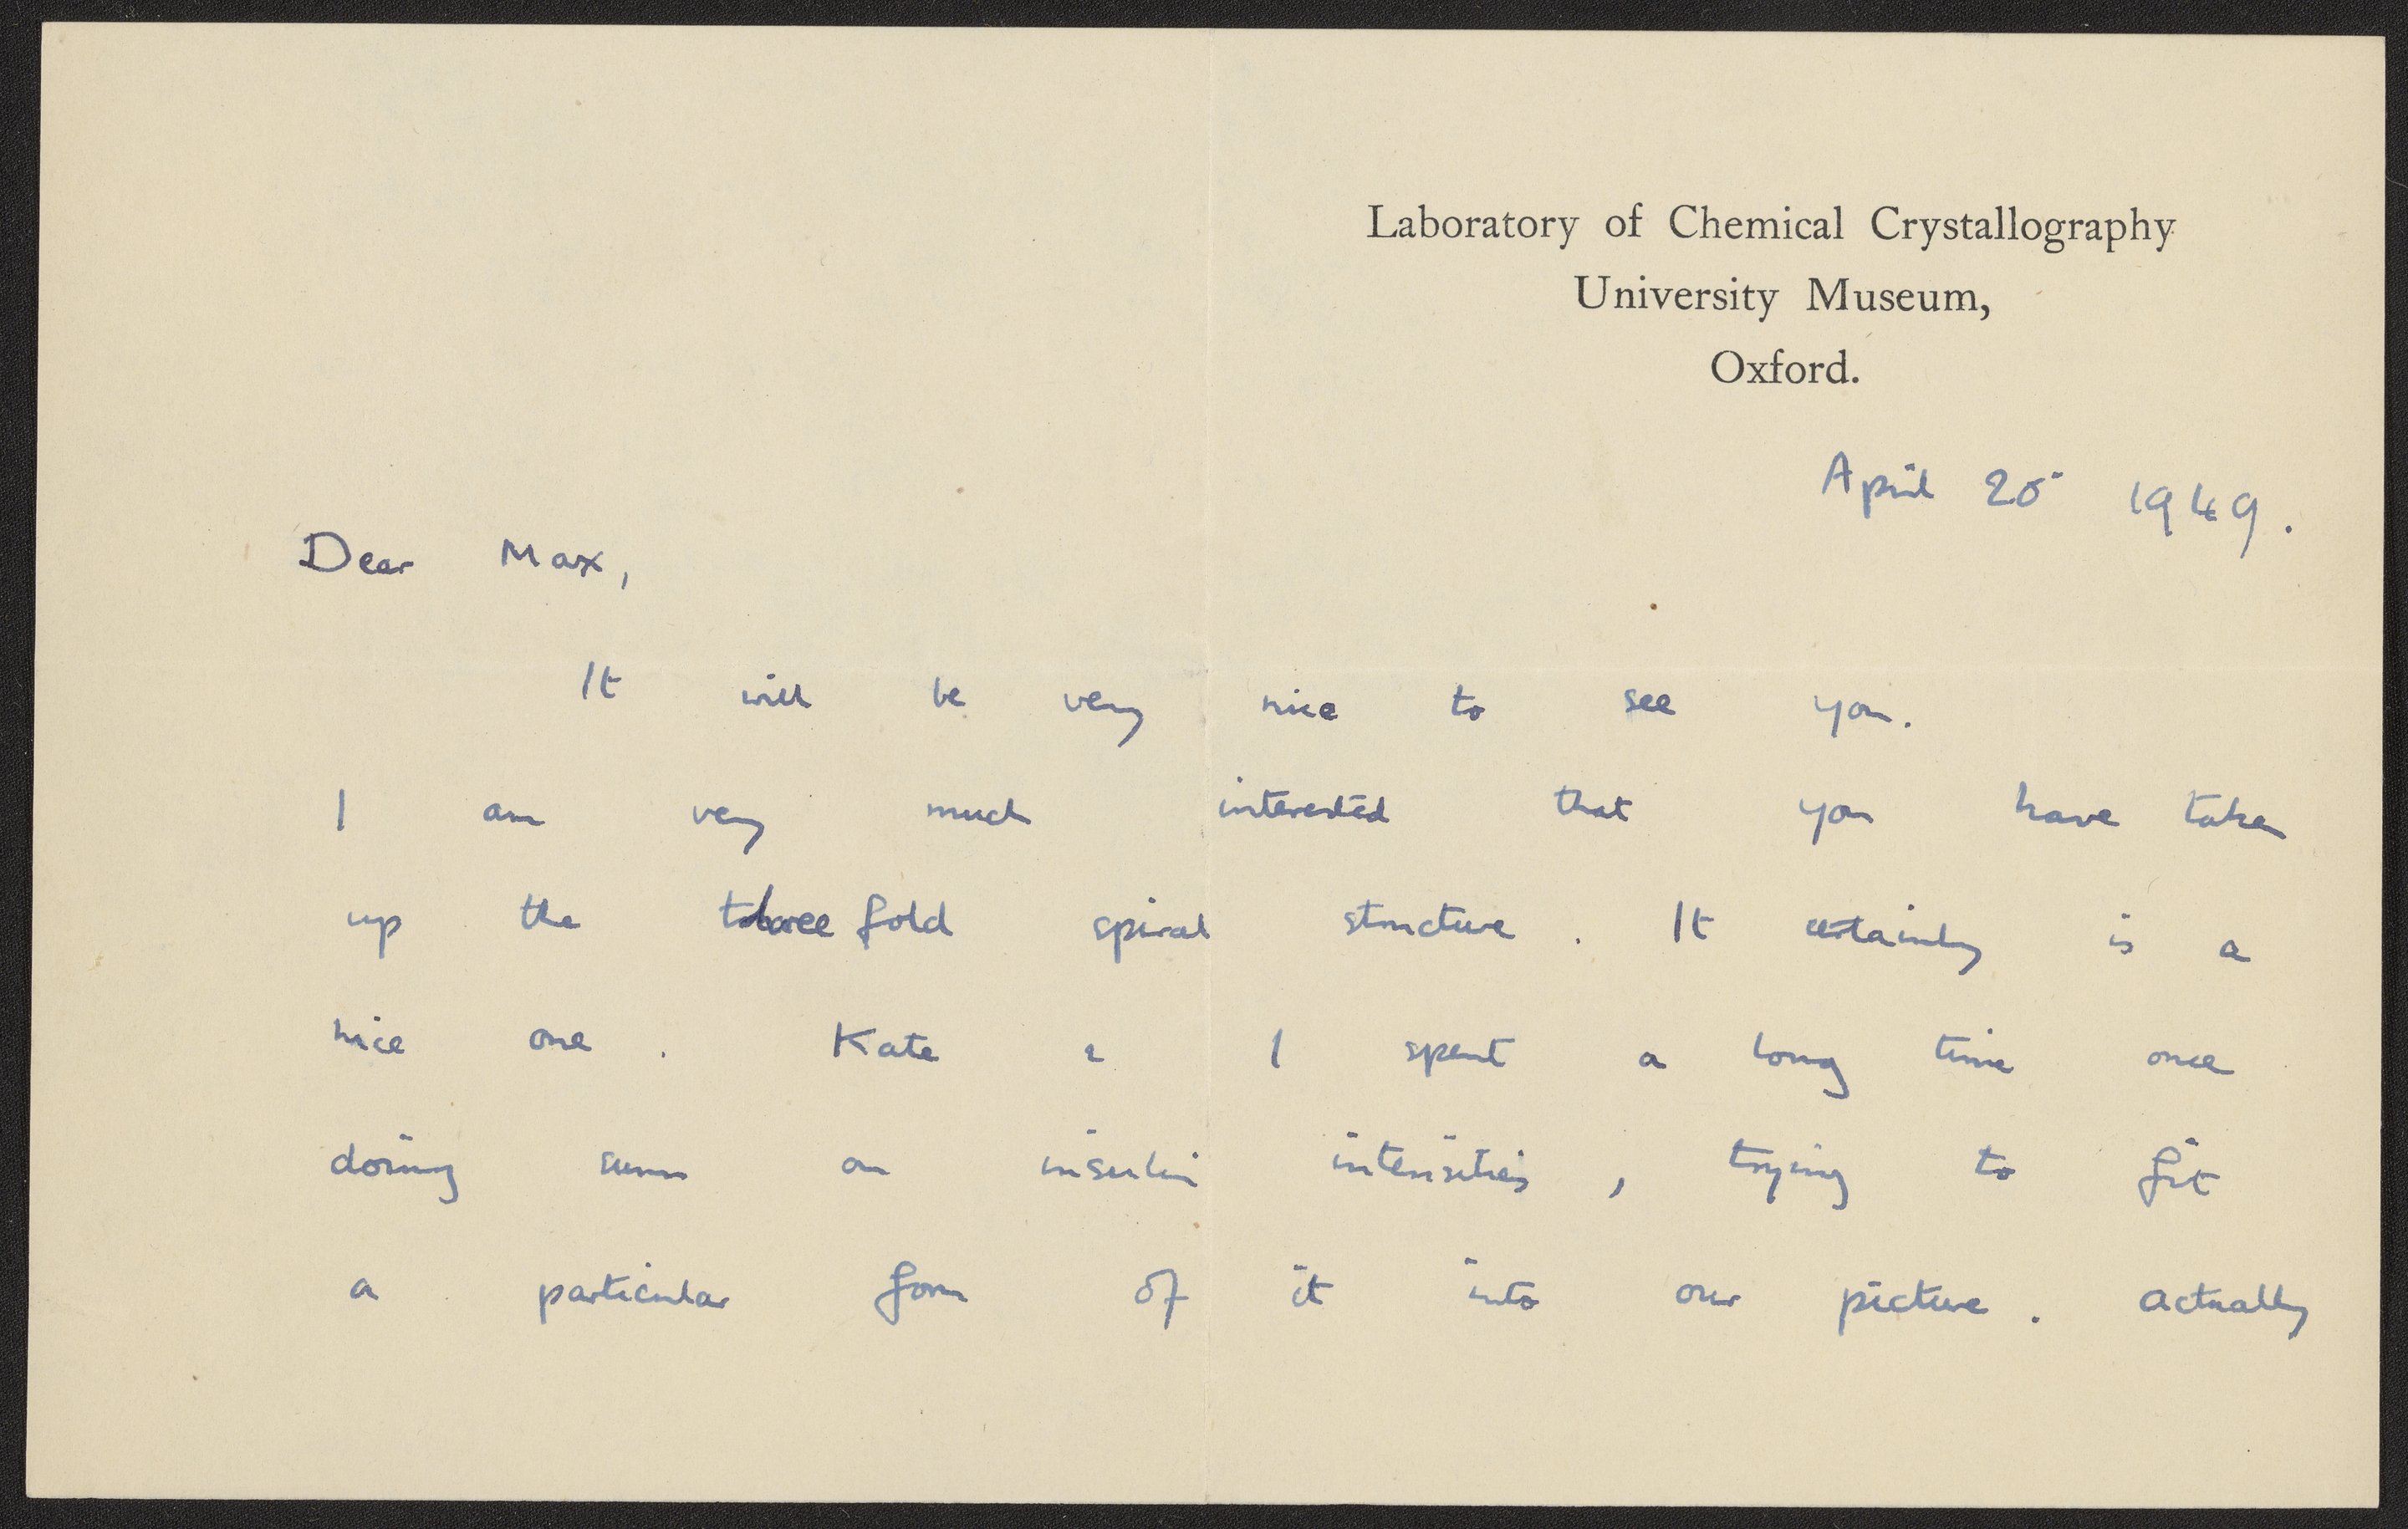 Laboratory of Chemical Crystallography
University Museum,
Oxford.
April 25 1949.
Dear Max,
It will be very nice to see you.
I am very much interested that you have taken
up the three fold spiral structure. It certainly is a
nice one. Kate & I spent a long time once
doing sums on insulin intensities, trying to fit
a particular form of it into our picture. Actually